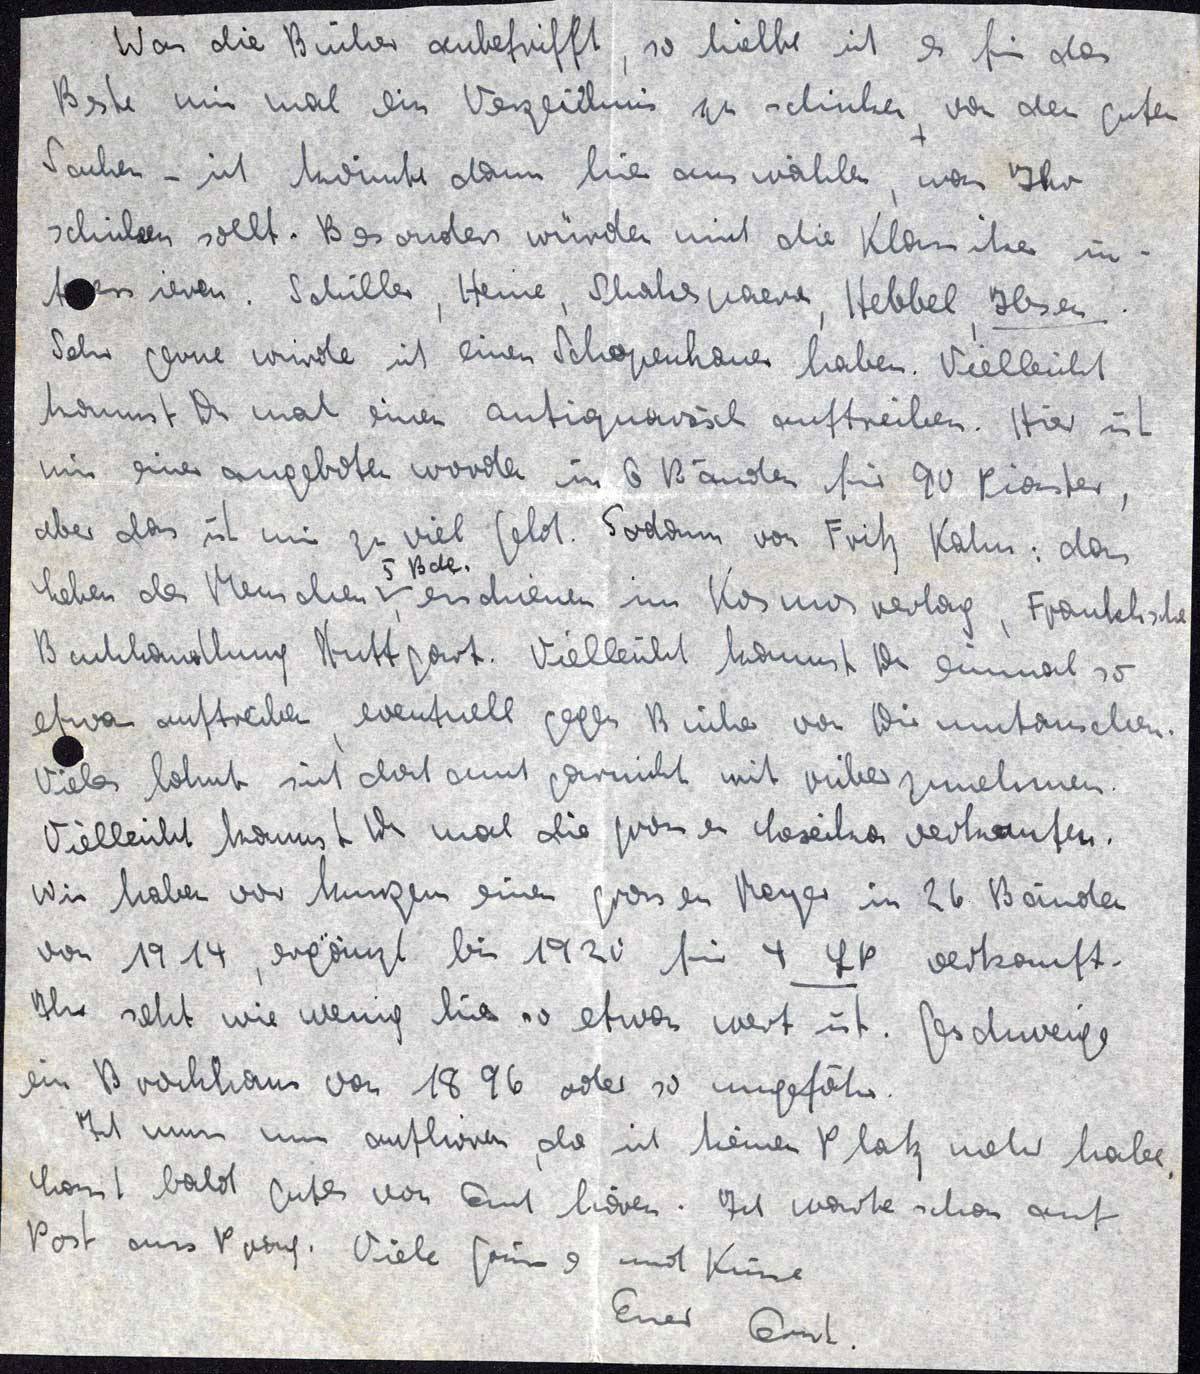 Was die Bücher anbetrifft, so hielte ich es für das
Beste mir mal ein Verzeichnis zu schicken, von den guten
Sachen - ich könnte dann hier auswählen, was Ihr
schicken sollt. Besonders würden mich die Klassiker in-
teressieren. Schiller, Heine, Shakespaere, Hebbel, Ibsen.
Sehr gerne würde ich einen Schopenhauer haben. Vielleicht
kannst Du mal einen antiquarisch auftreiben. Hier ist
mir einer angeboten worden in 6 Bänden für 90 Piaster,
aber das ist mir zu viel Geld. Sodann von Fritz Kahn: das
5 Bde.
Leben des Menschen, erschienen im Kosmosverlag, Frankhsche
Buchhandlung Stuttgart. Vielleicht kannst Du einmal so
etwas auftreiben, eventuell gegen Bücher von Dir umtauschen.
Vieles lohnt sich dort auch garnicht mit rüberzunehmen.
Vielleicht kannst Du mal die grossen Lexika verkaufen.
Wir haben vor kurzem einen grossen Meyer in 26 Bänden
von 1914, ergänzt bis 1920 für 4 £P verkauft.
Ihr seht wie wenig hier so etwas wert ist. Geschweige
ein Brockhaus von 1896 oder so ungefähr.
Ich muss nun aufhören, da ich keinen Platz mehr habe.
Lasst bald gutes von Euch hören. Ich warte schon auf
Post aus Prag. Viele Grüsse und Küsse
Euer Ernst.